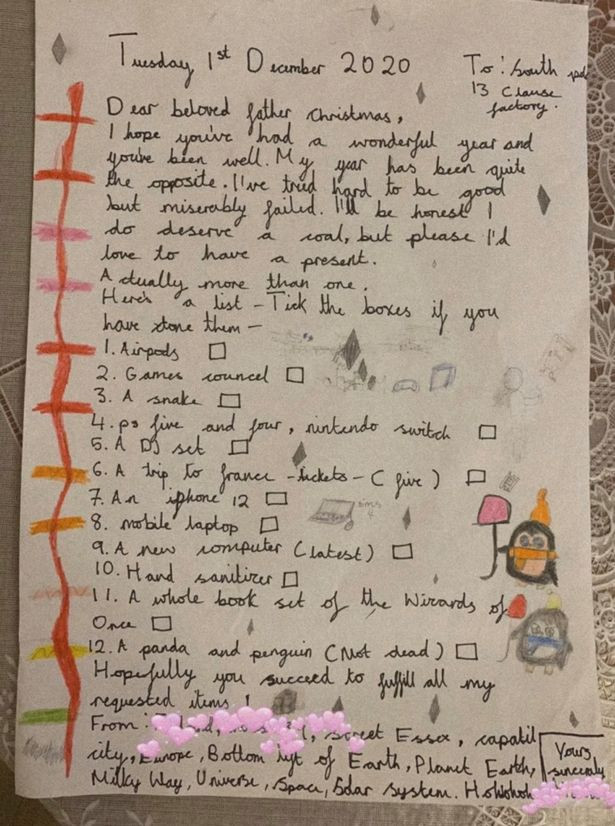 Tuesday 1st December 2020
To: South
13 Clause
factory.
Dear beloved father Christmas,
I hope you've had a wonderful year and
you've been well. My year has been quite
the opposite. I've tried hard to be good
but miserably failed. I'll be honest I
do deserve a coal, but please I'd
love to have a present.
Actually more than one.
Here's a list - Tick the boxes if you
have done them -
1. Airpods
2. Games councel
3. A snake
4. ps five and four, nintendo switch
5. A DJ set
6. A trip to france - tickets - (five)
7. An iphone 12
8. mobile laptop
9. A new computer (latest)
10. Hand sanitizer
11. A whole book set of the Wizards of
Once
12. A panda and penguin (Not dead)
Hopefully you succeed to fulfill all my
requested items!
From: street Essex, capatil
city, Europe, Bottom of Earth, Planet Earth,
Milky Way, Universe, Space, Solar system. Hohohoh
Yours
sincerely